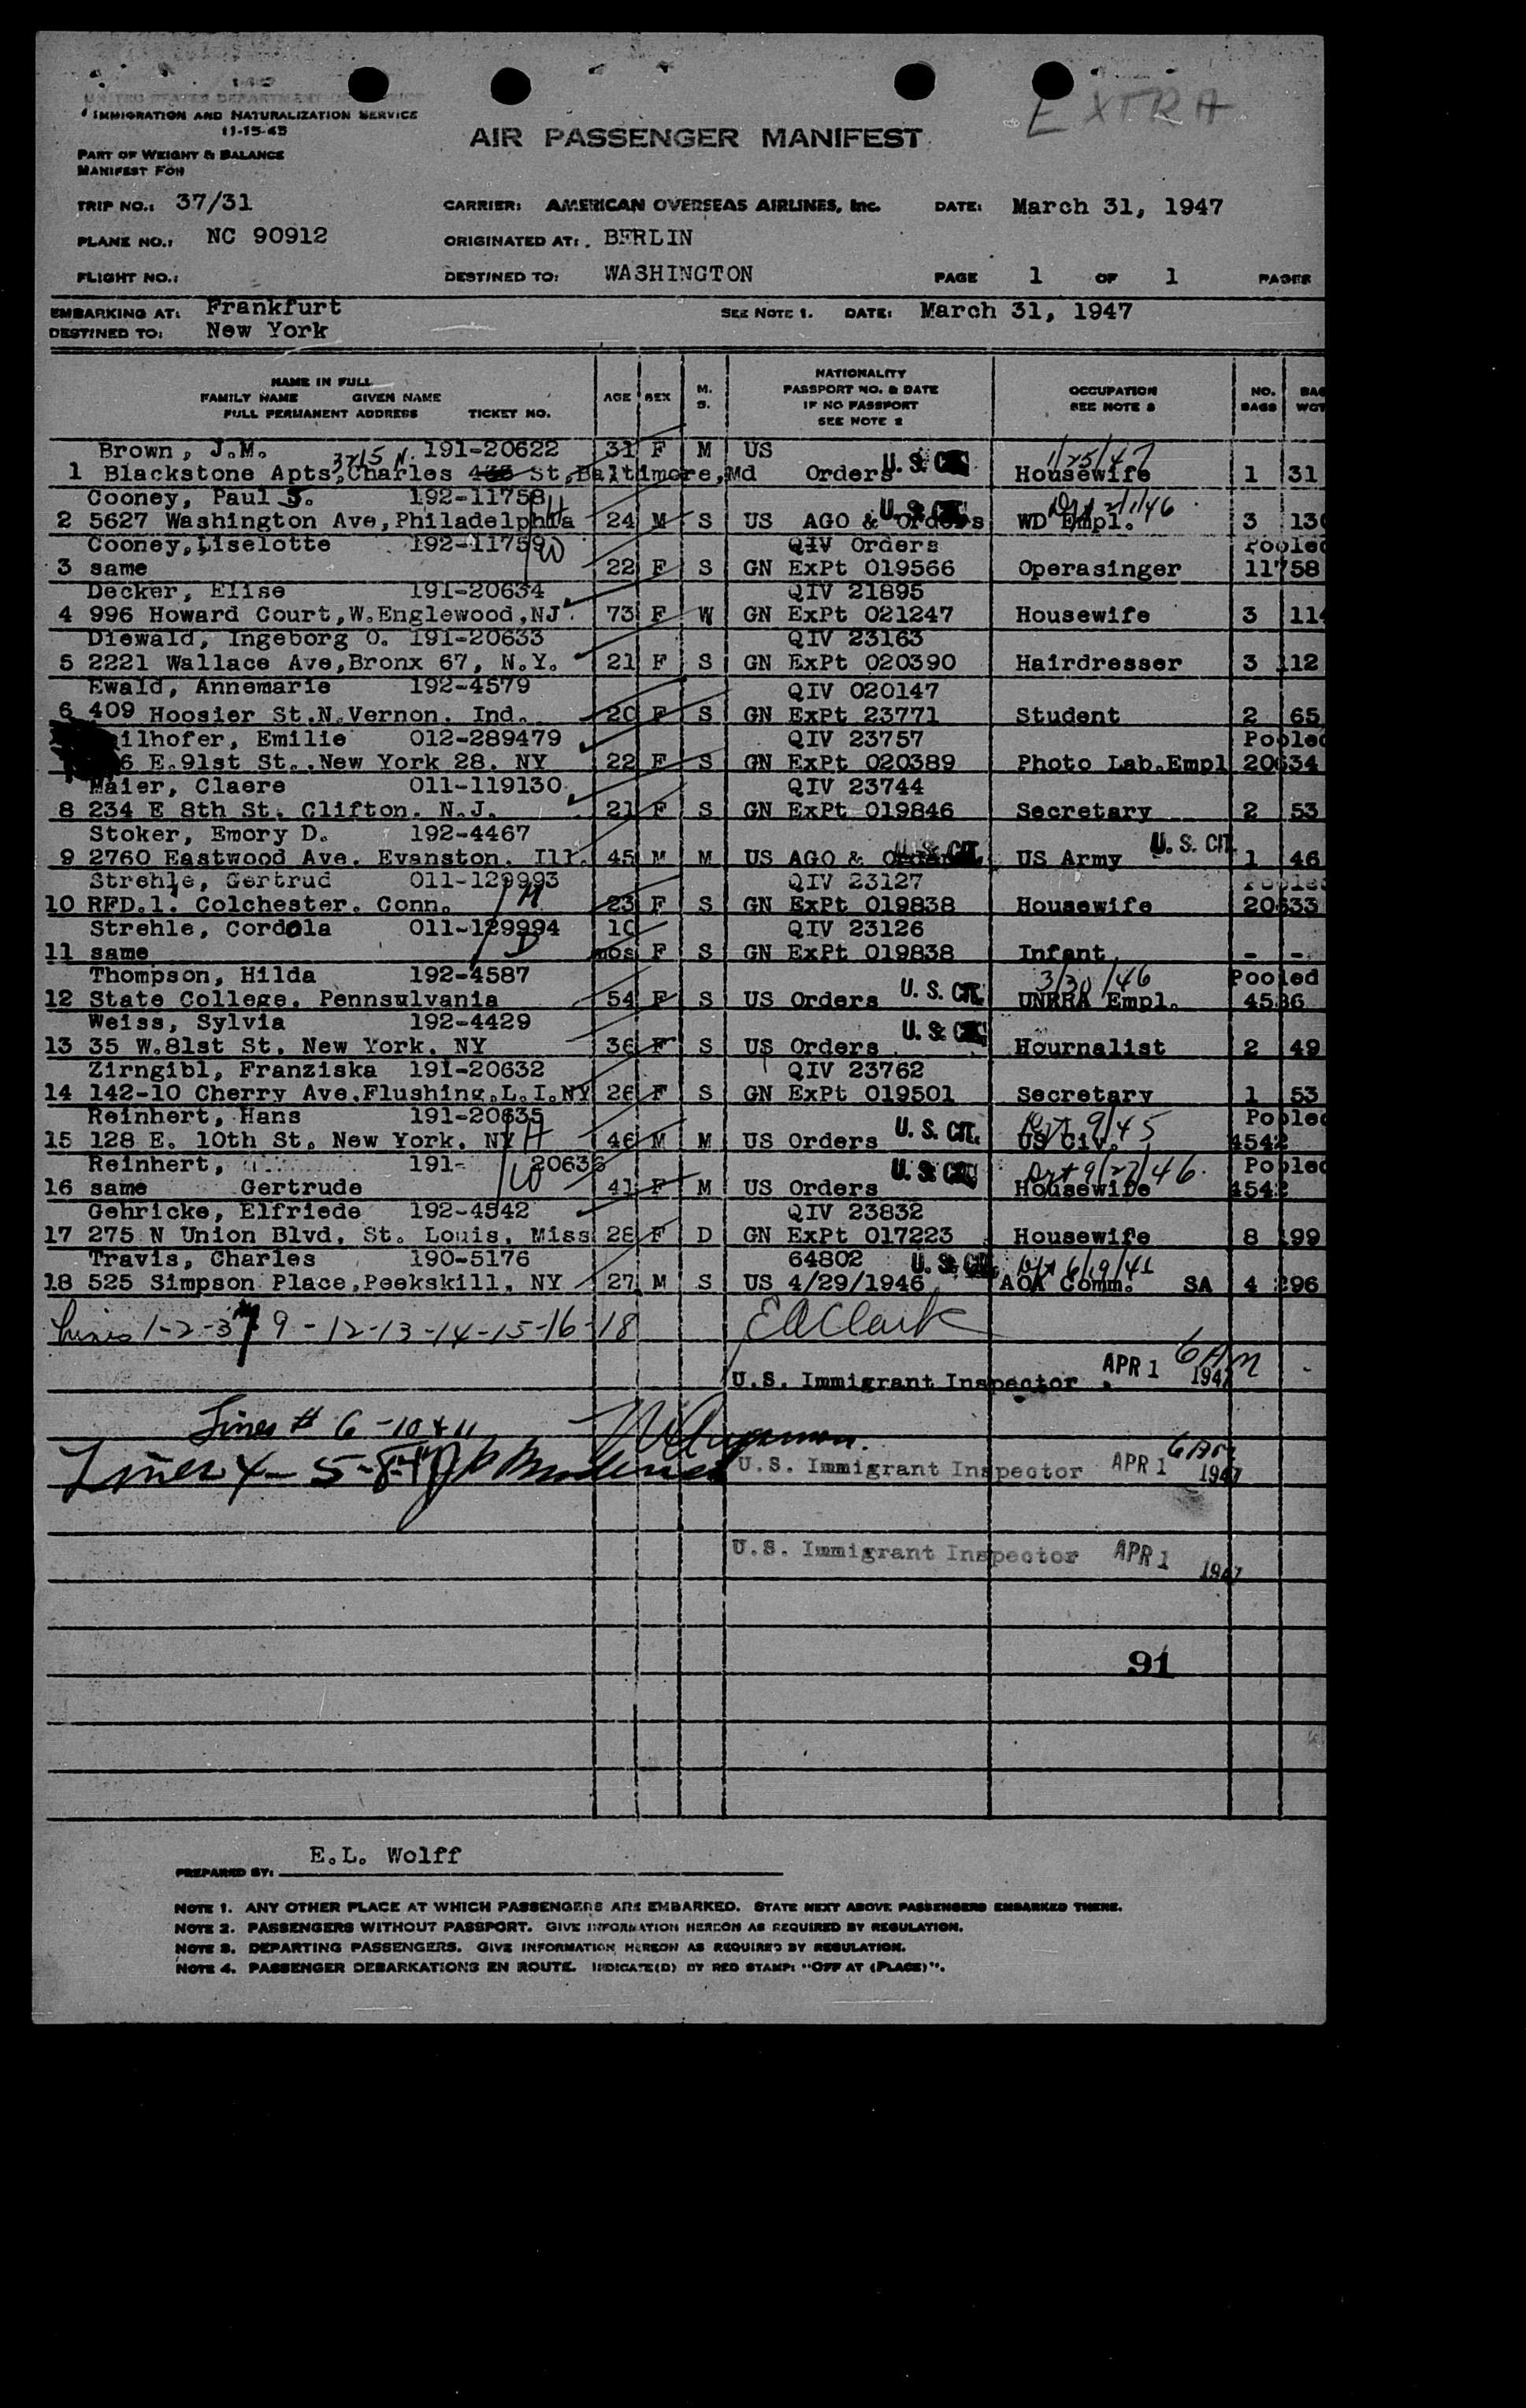 EXTRA
UNITED STATES DEPARTMENT OF JUSTICE
IMMIGRATION AND NATURALIZATION SERVICE
11-15-45
AIR PASSENGER MANIFEST
PART OF WEIGHT & BALANCE
MANIFEST FOR
TRIP NO.: 37/31 CARRIER: AMERICAN OVERSEAS AIRLINES, Inc. DATE: March 31, 1947
PLANE NO.: NC 90912 ORIGINATED AT: BERLIN
FLIGHT NO.: DESTINED TO: WASHINGTON PAGE 1 OF 1 PAGES
EMBARKING AT: Frankfurt SEE NOTE 1. DATE: March 31, 1947
DESTINED TO: New York
NAME IN FULL
FAMILY NAME GIVEN NAME
FULL PERMANENT ADDRESS TICKET NO.
AGE SEX M. S.
NATIONALITY
PASSPORT NO. & DATE
IF NO PASSPORT
SEE NOTE 2
OCCUPATION
SEE NOTE 3
NO. BAGS
BAG WGT
Brown, J.M. 3215 N. 191-20622 31 F M US 1/25/47
1 Blackstone Apts, Charles St, Baltimore, Md Orders U.S. CIT. Housewife 1 31
Cooney, Paul J. 192-11758 H
2 5627 Washington Ave, Philadelphia 24 M S US AGO & Orders U.S. CIT. WD Empl. 3 130
Cooney, Liselotte 192-11759 W QIV Orders Pooled
3 same 22 F S GN ExPt 019566 Operasinger 11758
Decker, Elise 191-20634 QIV 21895
4 996 Howard Court, W. Englewood, NJ. 73 F W GN ExPt 021247 Housewife 3 114
Diewald, Ingeborg O. 191-20633 QIV 23163
5 2221 Wallace Ave, Bronx 67, N.Y. 21 F S GN ExPt 020390 Hairdresser 3 112
Ewald, Annemarie 192-4579 QIV 020147
6 409 Hoosier St. N. Vernon. Ind. 20 F S GN ExPt 23771 Student 2 65
ilhofer, Emilie 012-289479 QIV 23757 Pooled
6 E. 91st St., New York 28. NY 22 F S GN ExPt 020389 Photo Lab. Empl 20634
Maier, Claere 011-119130 QIV 23744
8 234 E 8th St. Clifton. N.J. 21 F S GN ExPt 019846 Secretary 2 53
Stoker, Emory D. 192-4467
9 2760 Eastwood Ave. Evanston. Ill. 45 M M US AGO & Orders U.S. CIT. US Army U.S. CIT. 1 46
Strehle, Gertrud 011-129993 QIV 23127 Pooled
10 RFD.1. Colchester. Conn. M 23 F S GN ExPt 019838 Housewife 20633
Strehle, Cordola 011-129994 10 QIV 23126
11 same D mos F S GN ExPt 019838 Infant - -
Thompson, Hilda 192-4587 3/30/46 Pooled
12 State College. Pennsulvania 54 F S US Orders U.S. CIT. UNRRA Empl. 4586
Weiss, Sylvia 192-4429
13 35 W. 81st St. New York. NY 36 F S US Orders U.S. CIT. Hournalist 2 49
Zirngibl, Franziska 191-20632 QIV 23762
14 142-10 Cherry Ave. Flushing. L.I. NY 26 F S GN ExPt 019501 Secretary 1 53
Reinhert, Hans 191-20635 9/45 Pooled
15 128 E. 10th St, New York. NY H 46 M M US Orders U.S. CIT. US Civ. 4542
Reinhert, 191- 20636 9/27/46 Pooled
16 same Gertrude W 41 F M US Orders U.S. CIT. Housewife 4542
Gehricke, Elfriede 192-4542 QIV 23832
17 275 N Union Blvd, St. Louis, Miss 28 F D GN ExPt 017223 Housewife 8 199
Travis, Charles 190-5176 64802
18 525 Simpson Place, Peekskill, NY 27 M S US 4/29/1946 U.S. CIT. AOA Comm. SA 4 296
Lines 1-2-3 9-12-13-14-15-16-18 EAClark
U.S. Immigrant Inspector APR 1 1947 6 AM
Lines # 6-10 & 11
Lines 4-5-8 U.S. Immigrant Inspector APR 1 1947 6 AM
U.S. Immigrant Inspector APR 1 1947
91
PREPARED BY: E.L. Wolff
NOTE 1. ANY OTHER PLACE AT WHICH PASSENGERS ARE EMBARKED. STATE NEXT ABOVE PASSENGERS EMBARKED THERE.
NOTE 2. PASSENGERS WITHOUT PASSPORT. GIVE INFORMATION HEREON AS REQUIRED BY REGULATION.
NOTE 3. DEPARTING PASSENGERS. GIVE INFORMATION HEREON AS REQUIRED BY REGULATION.
NOTE 4. PASSENGER DEBARKATIONS EN ROUTE. INDICATE(D) BY RED STAMP: "OFF AT (PLACE)".